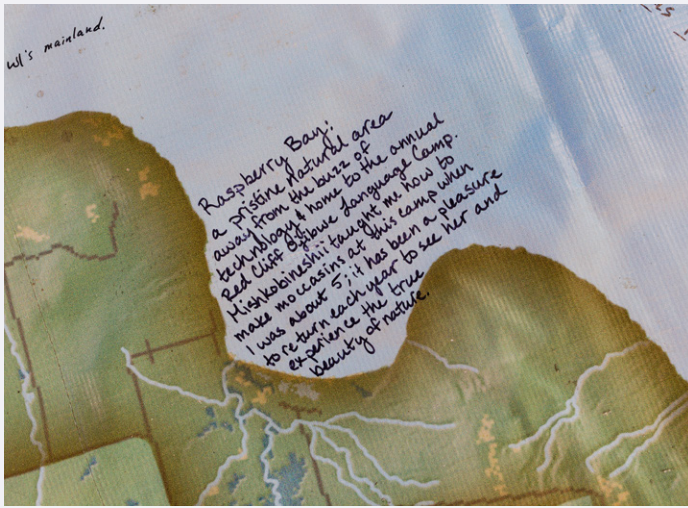 WI's mainland.
Raspberry Bay:
a pristine natural area
away from the buzz of
technology & home to the annual
Red Cliff Ojibwe Language Camp.
Mishkobineshii taught me how to
make moccasins at this camp when
I was about 5; it has been a pleasure
to return each year to see her and
experience the true
beauty of nature.